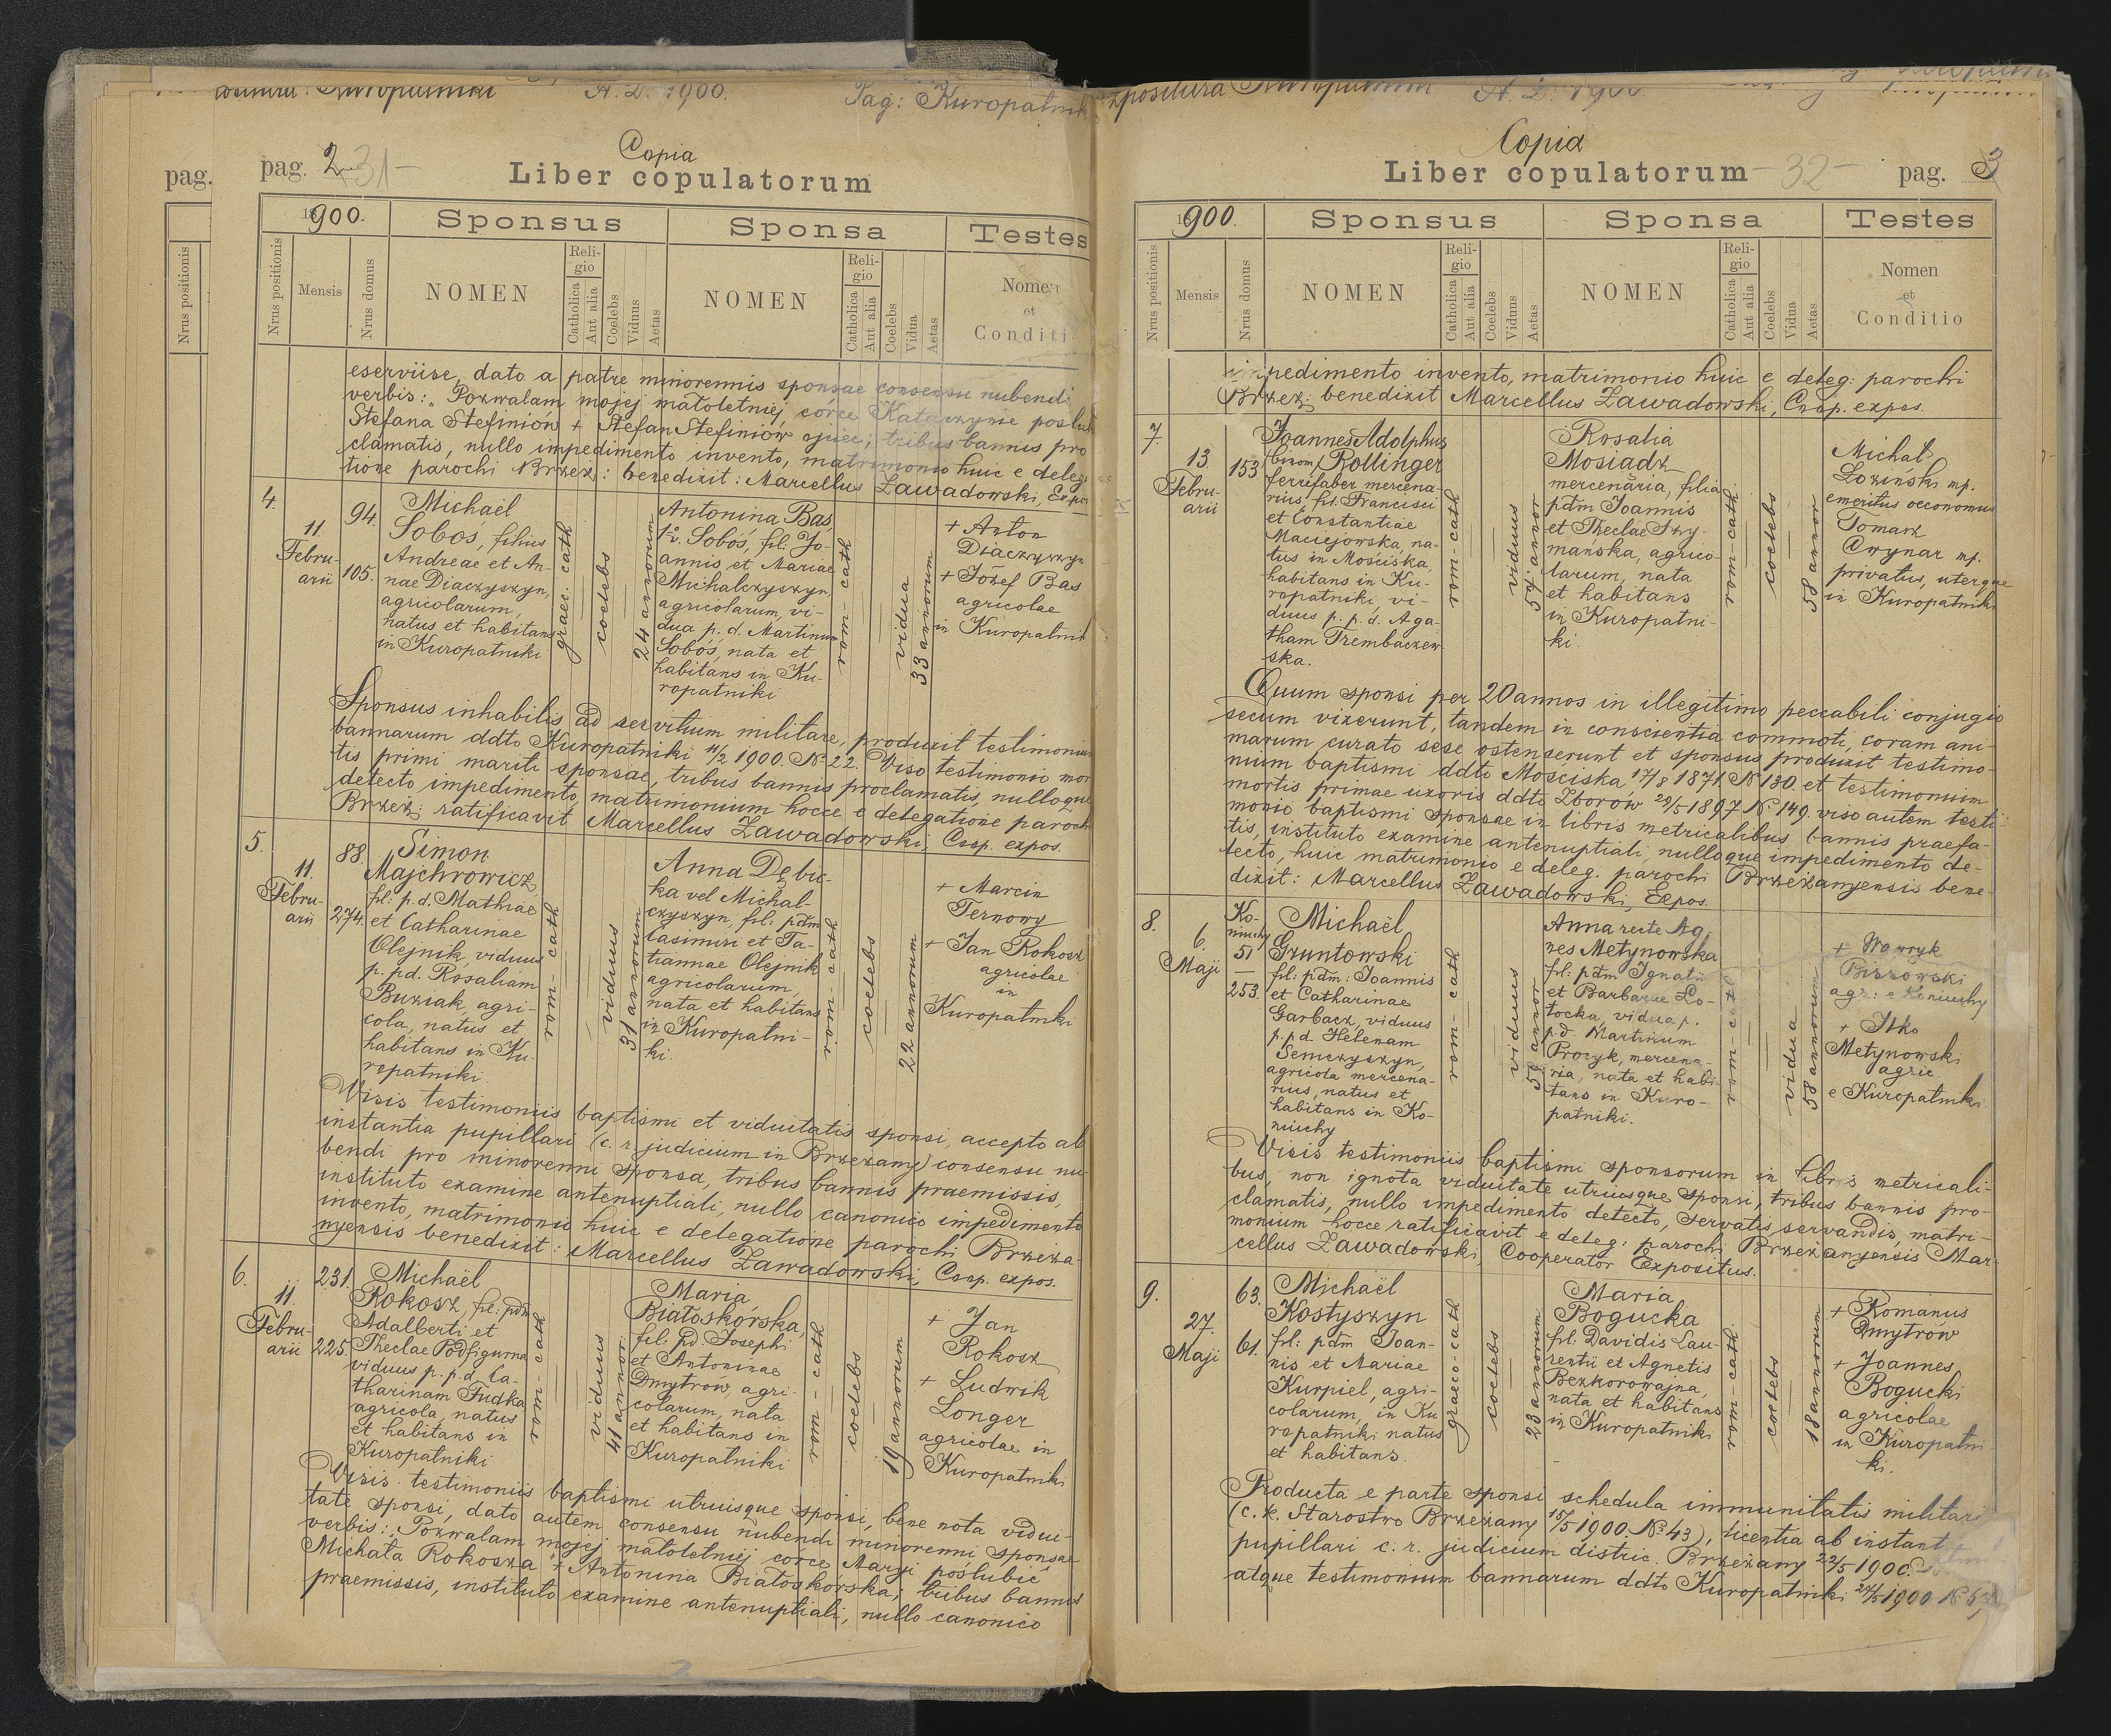 A. D. 1900.
Pag: Kuropatnik
pag.
pag. 2
31
Copia
Liber copulatorum
1900.
Sponsus
Sponsa
Testes
Nrus positionis
Nrus positionis
Mensis
Nrus domus
NOMEN
Religio
Catholica
Aut alia
Coelebs
Viduus
Aetas
NOMEN
Religio
Catholica
Aut alia
Coelebs
Vidua
Aetas
Nomen
et
Conditi
eserviise, dato a patre minorennis sponsae consensu nubendi
verbis: „Pozwalam mojej małoletniej córce Katarzynie poślub
Stefana Stefiniów + Stefan Stefiniów ojciec; tribus bannis pro
clamatis, nullo impedimento invento, matrimonio huic e delega
tione parochi Brzeż: benedixit: Marcellus Zawadowski, Expo
4.
11.
Febru-
arii
94.
105.
Michaël
Soboś, filius
Andreae et An-
nae Diaczyszyn,
agricolarum,
natus et habitans
in Kuropatniki
graec. cath
coelebs
24 annorum
Antonina Bas,
1º v. Soboś, fil: Jo-
annis et Mariae
Michalczyszyn,
agricolarum, vi-
dua p. d. Martinum
Soboś, nata et
habitans in Ku-
ropatniki
rom - cath
vidua
33 annorum
+ Anton
Diaczyszyn
+ Józef Bas
agricolae
in Kuropatnik
Sponsus inhabilis ad servitium militare, produxit testimonium
bannarum ddto Kuropatniki 11/2 1900. No 22. Viso testimonio mor
tis primi mariti sponsae, tribus bannis proclamatis, nulloque
detecto impedimento, matrimonium hocce e delegatione paroch
Brzeż: ratificavit Marcellus Zawadowski, Coop. expos.
5.
11.
Febru-
arii
88.
274.
Simon
Majchrowicz,
fil: p.d. Mathiae
et Catharinae
Olejnik, viduus
p. pd. Rosaliam
Buziak, agri-
cola, natus et
habitans in Ku-
ropatniki
rom - cath
viduus
31 annorum
Anna Dębic-
ka vel Michal-
czyszyn, fil: pdm
Casimiri et Ta-
tiannae Olejnik
agricolarum,
nata et habitans
in Kuropatni-
ki.
rom - cath
coelebs
22 annorum
+ Marcin
Ternowy
+ Jan Rokosz
agricolae
in
Kuropatniki
Visis testimoniis baptismi et viduitatis sponsi, accepto ab
instantia pupillari (c. r. judicium in Brzeżany) consensu nu
bendi pro minorenni sponsa, tribus bannis praemissis,
instituto examine antenuptiali, nullo canonico impedimento
invento, matrimonio huic e delegatione parochi Brzeża-
nyensis benedixit: Marcellus Zawadowski, Coop. expos.
6.
11.
Febru-
arii
231.
225.
Michaël
Rokosz, fil: pdm
Adalberti et
Theclae Podfigurna
viduus p. p. d. Ca-
tharinam Fudka
agricola, natus
et habitans in
Kuropatniki
rom - cath
viduus
41 annor
Maria
Białoskórska,
fil: pd Josephi
et Antoninae
Dmytrów, agri-
colarum, nata
et habitans in
Kuropatniki
rom - cath
coelebs
19 annorum
+ Jan
Rokosz
+ Ludwik
Longer
agricolae in
Kuropatniki
Visis testimoniis baptismi utriusque sponsi, bene nota vidui-
tate sponsi, dato autem consensu nubendi minorenni sponsae
verbis: „Pozwalam mojej małoletniej córce Maryi poślubić
Michała Rokosza" + Antonina Białoskórska; tribus bannis
praemissis, instituto examine antenuptiali, nullo canonico
Expositura Kuropatniki
A. D. 1900.
Copia
Liber copulatorum
32
pag. 3
1900.
Sponsus
Sponsa
Testes
Nrus positionis
Mensis
Nrus domus
NOMEN
Religio
Catholica
Aut alia
Coelebs
Viduus
Aetas
NOMEN
Religio
Catholica
Aut alia
Coelebs
Vidua
Aetas
Nomen
et
Conditio
impedimento invento, matrimonio huic e deleg: parochi
Brzeż: benedixit Marcellus Zawadowski, Coop. expos.
7.
13.
Febru-
arii
153
Joannes Adolphus
(binom) Rollinger
ferrifaber mercena-
rius, fil: Francisci
et Constantiae
Maciejowska, na-
tus in Mościska,
habitans in Ku-
ropatniki, vi-
duus p. p. d. Aga-
tham Trembaczew
ska.
rom - cath
viduus
54 annor
Rosalia
Mosiadz
mercenaria, filia
pdm Joannis
et Theclae Szy-
mańska, agrico-
larum, nata
et habitans
in Kuropatni-
ki.
rom - cath
coelebs
58 annor
Michał
Łoziński mp.
emeritus oeconomus
Tomasz
Cwynar mp.
privatus, uterque
in Kuropatniki
Quum sponsi per 20 annos in illegitimo peccabili conjugio
secum vixerunt, tandem in conscientia commoti, coram ani-
marum curato sese ostenserunt et sponsus produxit testimo-
nium baptismi ddto Mościska, 17/8 1871. No 130. et testimonium
mortis primae uxoris ddto Zborów 29/5 1897 No 149. viso autem testi-
monio baptismi sponsae in libris metricalibus, bannis praefa-
tis, instituto examine antenuptiali, nulloque impedimento de-
tecto, huic matrimonio e deleg. parochi Brzeżanyensis bene-
dixit: Marcellus Zawadowski, Expos.
8.
6.
Maji
Ko-
niuchy
51
253.
Michaël
Gruntowski
fil: pdm: Joannis
et Catharinae
Garbacz, viduus
p. p d. Helenam
Semczyszyn,
agricola mercena-
rius, natus et
habitans in Ko-
niuchy
rom - cath
viduus
annor
Anna recte Ag-
nes Metynowska
fil: pdm Ignatii
et Barbarae Ło-
tocka, vidua p.
p.d. Martinum
Procyk, mercena-
ria, nata et habi-
tans in Kuro-
patniki.
rom - cath
vidua
58 annorum
+ Wawryk
Biszowski
agr: e Koniuchy
+ Ilko
Metynowski
agric
e Kuropatniki
Visis testimoniis baptismi sponsorum in libris metricali-
bus, non ignota viduitate utriusque sponsi, tribus bannis pro-
clamatis, nullo impedimento detecto, servatis servandis, matri-
monium hocce ratificavit e deleg: parochi Brzeżanyensis Mar-
cellus Zawadowski, Cooperator Expositus.
9.
27.
Maji
63.
61.
Michaël
Kostyszyn
fil: pdm Joan-
nis et Mariae
Kurpiel, agri-
colarum, in Ku
ropatniki natus
et habitans.
graeco-cath
coelebs
23 annorum
Maria
Bogucka
fil: Davidis Lau-
rentii et Agnetis
Bezkorowajna,
nata et habitans
in Kuropatniki
rom - cath.
coelebs
18 annorum
+ Romanus
Dmytrów
+ Joannes
Bogucki
agricolae
in Kuropatni-
ki.
Producta e parte sponsi schedula immunitatis militari
(c. k. Starostwo Brzeżany 15/5 1900. No 43), licentia ab instant
pupillari c. r. judicium distric. Brzeżany 22/5 1900.
atque testimonium bannarum ddto Kuropatniki 27/5 1900 No